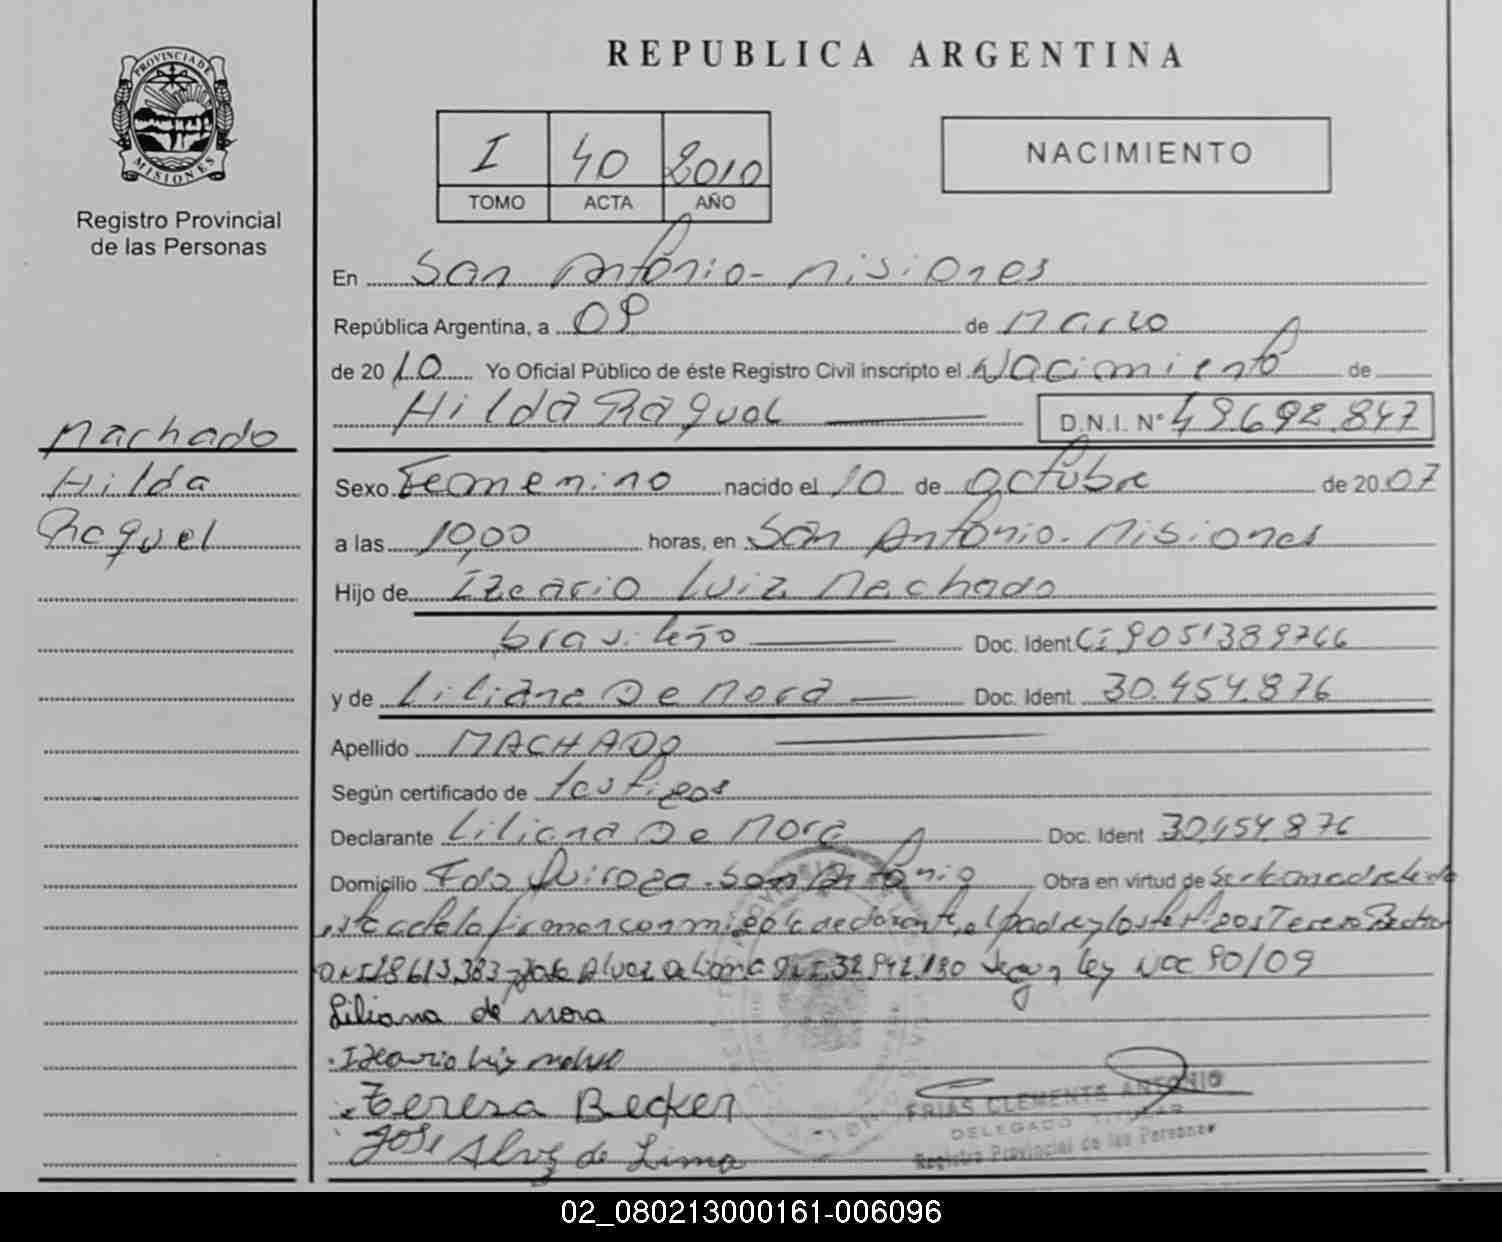 REPUBLICA ARGENTINA
PROVINCIA DE MISIONES
Registro Provincial
de las Personas
I 40 2010
TOMO ACTA AÑO
NACIMIENTO
En San Antonio - Misiones
República Argentina, a 09 de Marzo
de 2010 Yo Oficial Público de éste Registro Civil inscripto el Nacimiento de
Hilda Raquel D.N.I. Nº 49.692.847
Machado
Hilda
Raquel
Sexo Femenino nacido el 10 de octubre de 2007
a las 10,00 horas, en San Antonio - Misiones
Hijo de Izeario Luiz Machado
brasileño Doc. Ident CI 9051389766
y de Liliana De Mora Doc. Ident. 30.454.876
Apellido MACHADO
Según certificado de testigos
Declarante Liliana De Mora Doc. Ident 30.454.876
Domicilio Fdo Quiroga - San Antonio Obra en virtud de
firman conmigo la declarante, el padre y los testigos Teresa Becker
DNI 18.613.383 y José Alvez De Lima DNI 32.942.190 según ley 90/09
Liliana de mora
Izeario Luiz
Teresa Becker
José Alvez de Lima
FRIAS CLEMENTE ANTONIO
DELEGADO TITULAR
Registro Provincial de las Personas
02_080213000161-006096